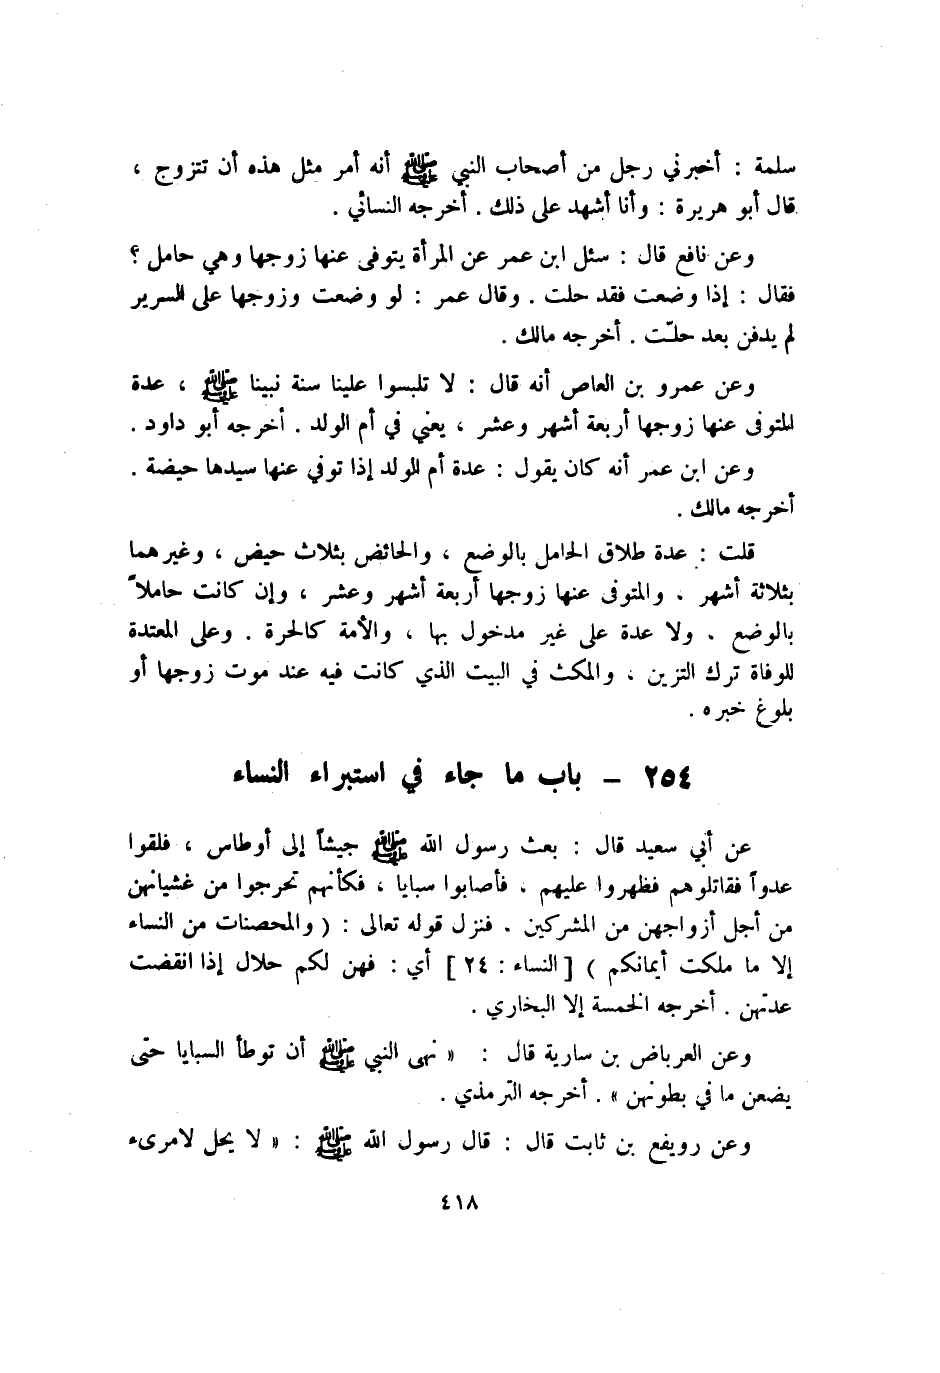 سلمة : أخبرني رجل من أصحاب النبي ﷺ أنه أمر مثل هذه أن تتزوج ،
قال أبو هريرة : وأنا أشهد على ذلك . أخرجه النسائي .
وعن نافع قال : سئل ابن عمر عن المرأة يتوفى عنها زوجها وهي حامل ؟
فقال : إذا وضعت فقد حلت . وقال عمر : لو وضعت وزوجها على السرير
لم يدفن بعد حلّت . أخرجه مالك .
وعن عمرو بن العاص أنه قال : لا تلبسوا علينا سنة نبينا ﷺ ، عدة
المتوفى عنها زوجها أربعة أشهر وعشر ، يعني في أم الولد . أخرجه أبو داود .
وعن ابن عمر أنه كان يقول : عدة أم الولد إذا توفي عنها سيدها حيضة .
أخرجه مالك .
قلت : عدة طلاق الحامل بالوضع ، والحائض بثلاث حيض ، وغيرهما
بثلاثة أشهر . والمتوفى عنها زوجها أربعة أشهر وعشر ، وإن كانت حاملاً
بالوضع . ولا عدة على غير مدخول بها ، والأمة كالحرة . وعلى المعتدة
للوفاة ترك التزين ، والمكث في البيت الذي كانت فيه عند موت زوجها أو
بلوغ خبره .
٢٥٤ – باب ما جاء في استبراء النساء
عن أبي سعيد قال : بعث رسول الله ﷺ جيشاً إلى أوطاس ، فلقوا
عدواً فقاتلوهم فظهروا عليهم . فأصابوا سبايا ، فكأنهم تحرجوا من غشيانهن
من أجل أزواجهن من المشركين . فنزل قوله تعالى : ( والمحصنات من النساء
إلا ما ملكت أيمانكم ) [ النساء : ٢٤ ] أي : فهن لكم حلال إذا انقضت
عدتهن . أخرجه الخمسة إلا البخاري .
وعن العرباض بن سارية قال : « نهى النبي ﷺ أن توطأ السبايا حتى
يضعن ما في بطونهن » . أخرجه الترمذي .
وعن رويفع بن ثابت قال : قال رسول الله ﷺ : « لا يحل لامرىء
٤١٨